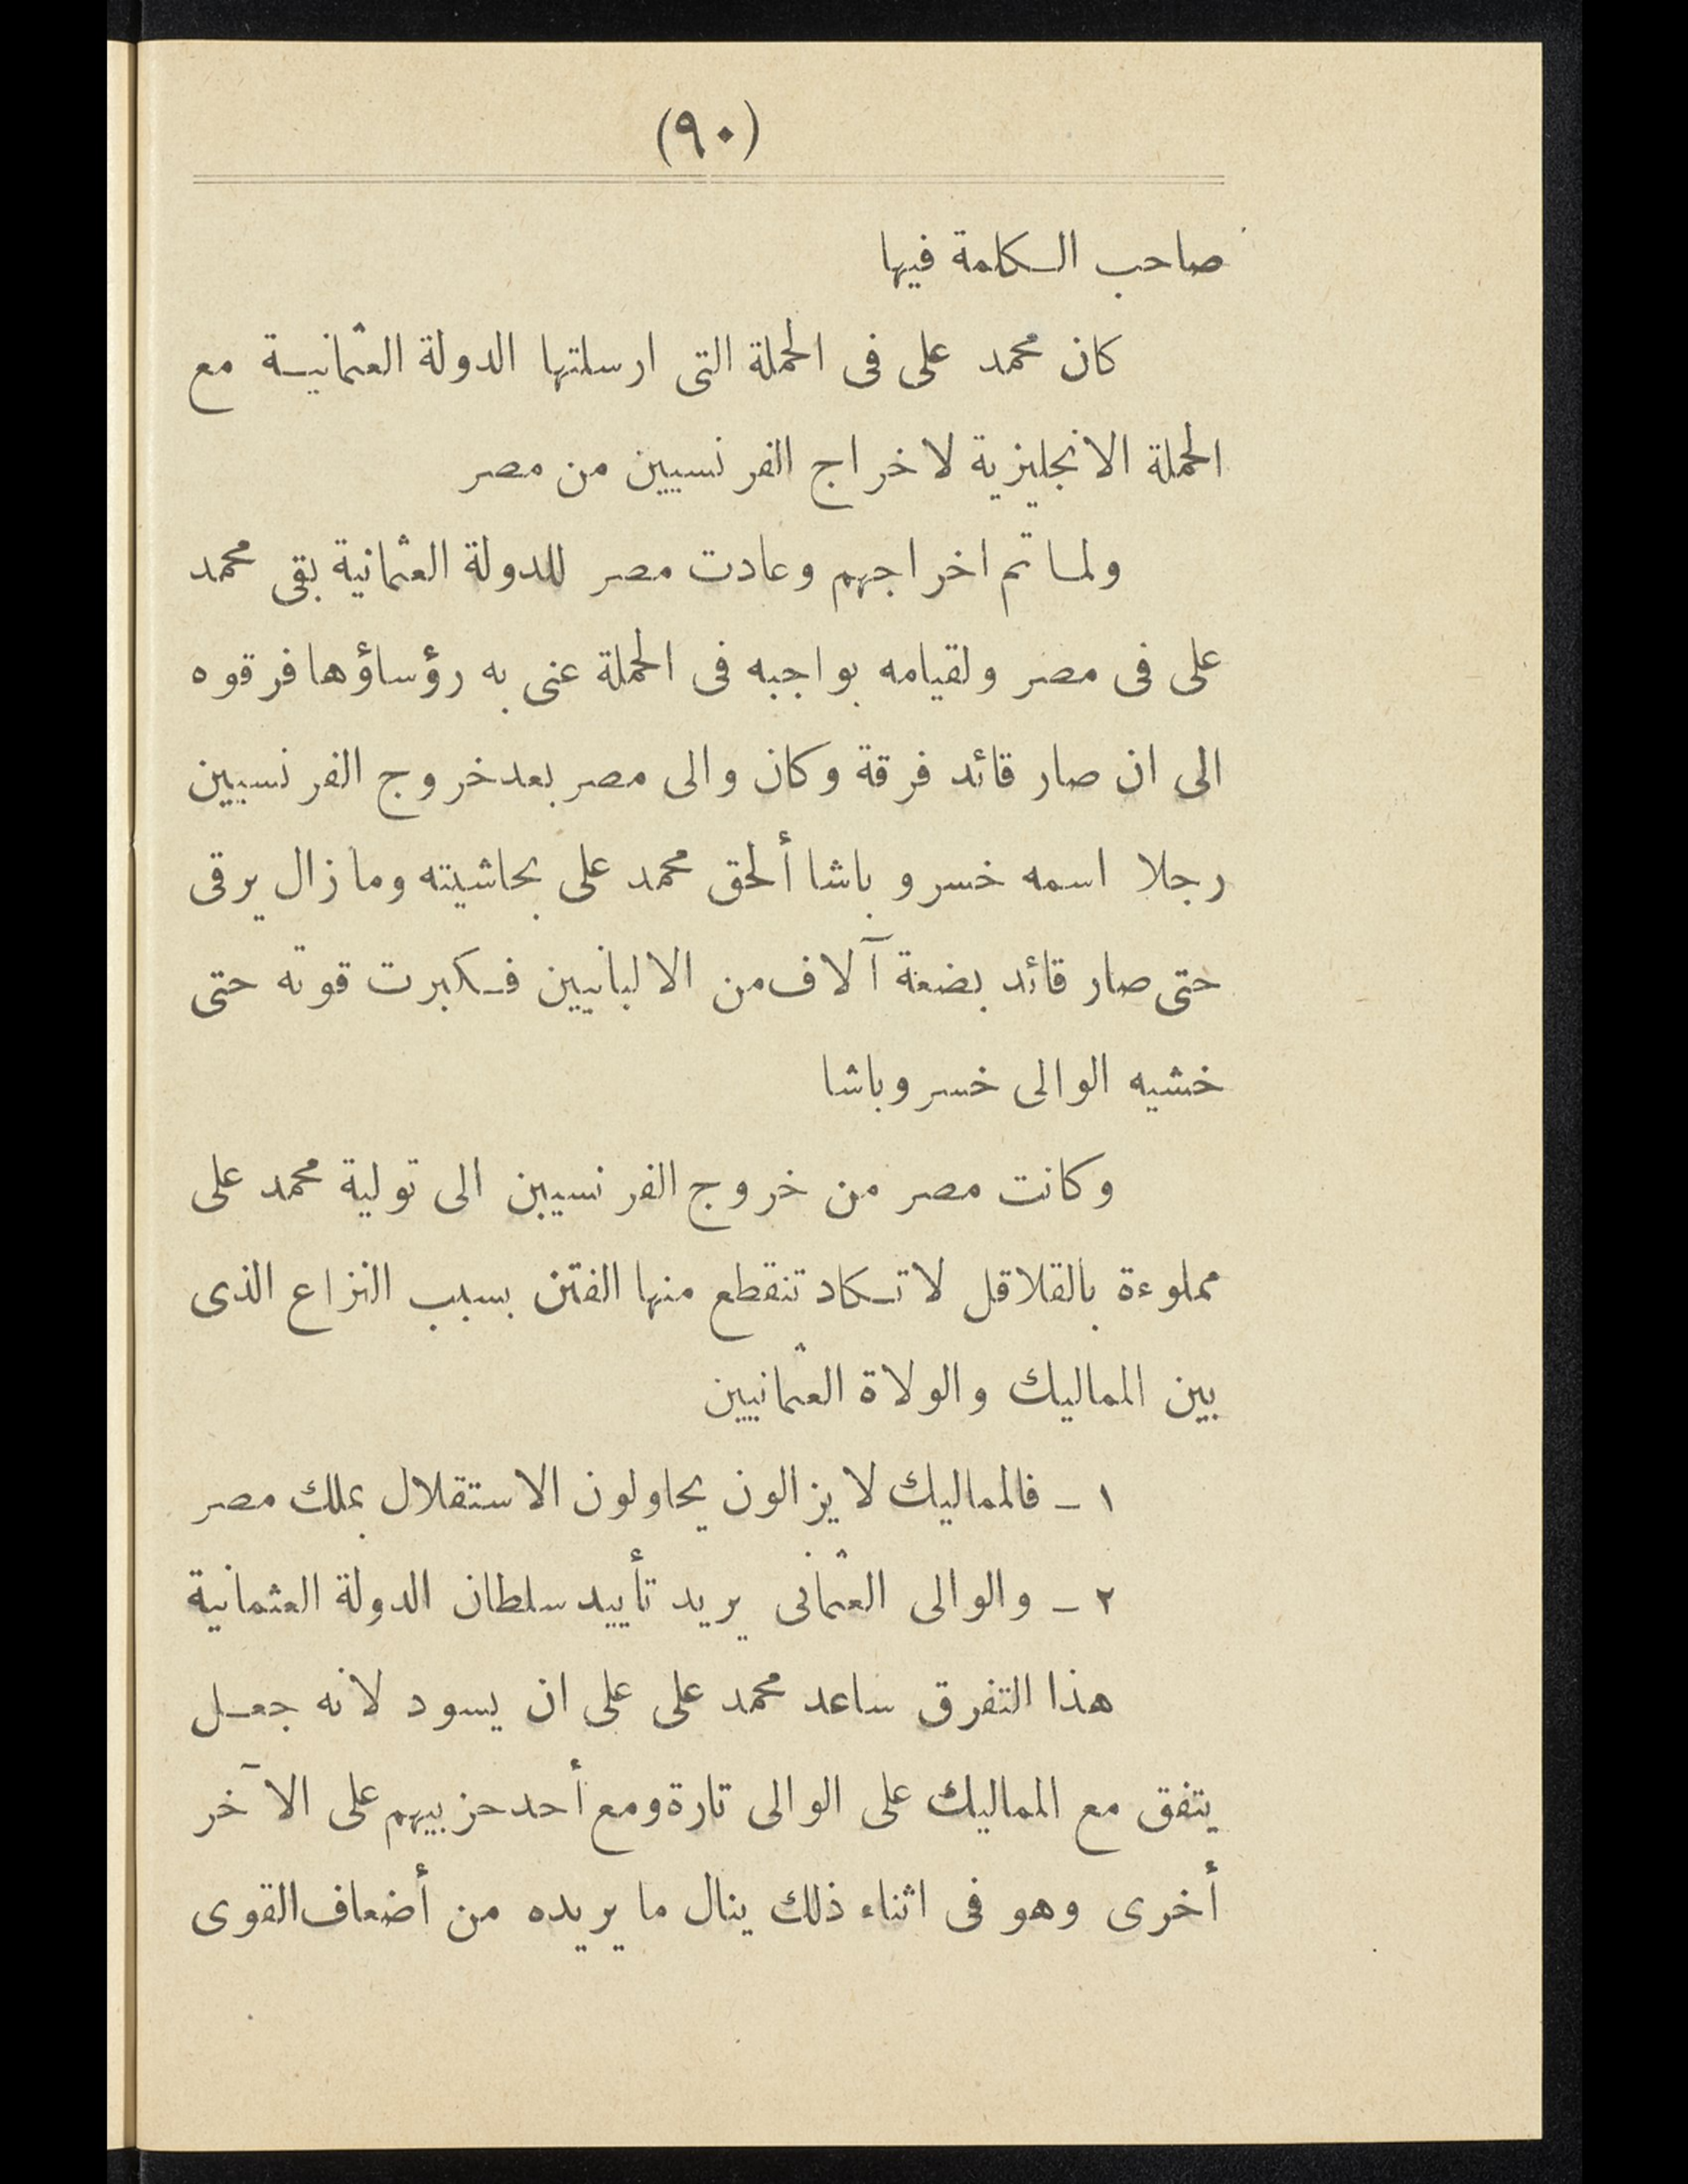 (٩٠)
صاحب الكلمة فيها
كان محمد على فى الحملة التى ارسلتها الدولة العثمانية مع
الحملة الانجليزية لاخراج الفرنسيين من مصر
ولما تم اخراجهم وعادت مصر للدولة العثمانية بقى محمد
على فى مصر ولقيامه بواجبه فى الحملة عنى به رؤساؤها فرقوه
الى ان صار قائد فرقة وكان والى مصر بعد خروج الفرنسيين
رجلا اسمه خسرو باشا ألحق محمد على بحاشيته وما زال يرقى
حتى صار قائد بضعة آلاف من الالبانيين فكبرت قوته حتى
خشيه الوالى خسرو باشا
وكانت مصر من خروج الفرنسيين الى تولية محمد على
مملوءة بالقلاقل لا تكاد تنقطع منها الفتن بسبب النزاع الذى
بين المماليك والولاة العثمانيين
١ ـ فالمماليك لا يزالون يحاولون الاستقلال بملك مصر
٢ ـ والوالى العثمانى يريد تأييد سلطان الدولة العثمانية
هذا التفرق ساعد محمد على على ان يسود لانه جعل
يتفق مع المماليك على الوالى تارة ومع أحد حزبيهم على الآخر
أخرى وهو فى اثناء ذلك ينال ما يريده من أضعاف القوى